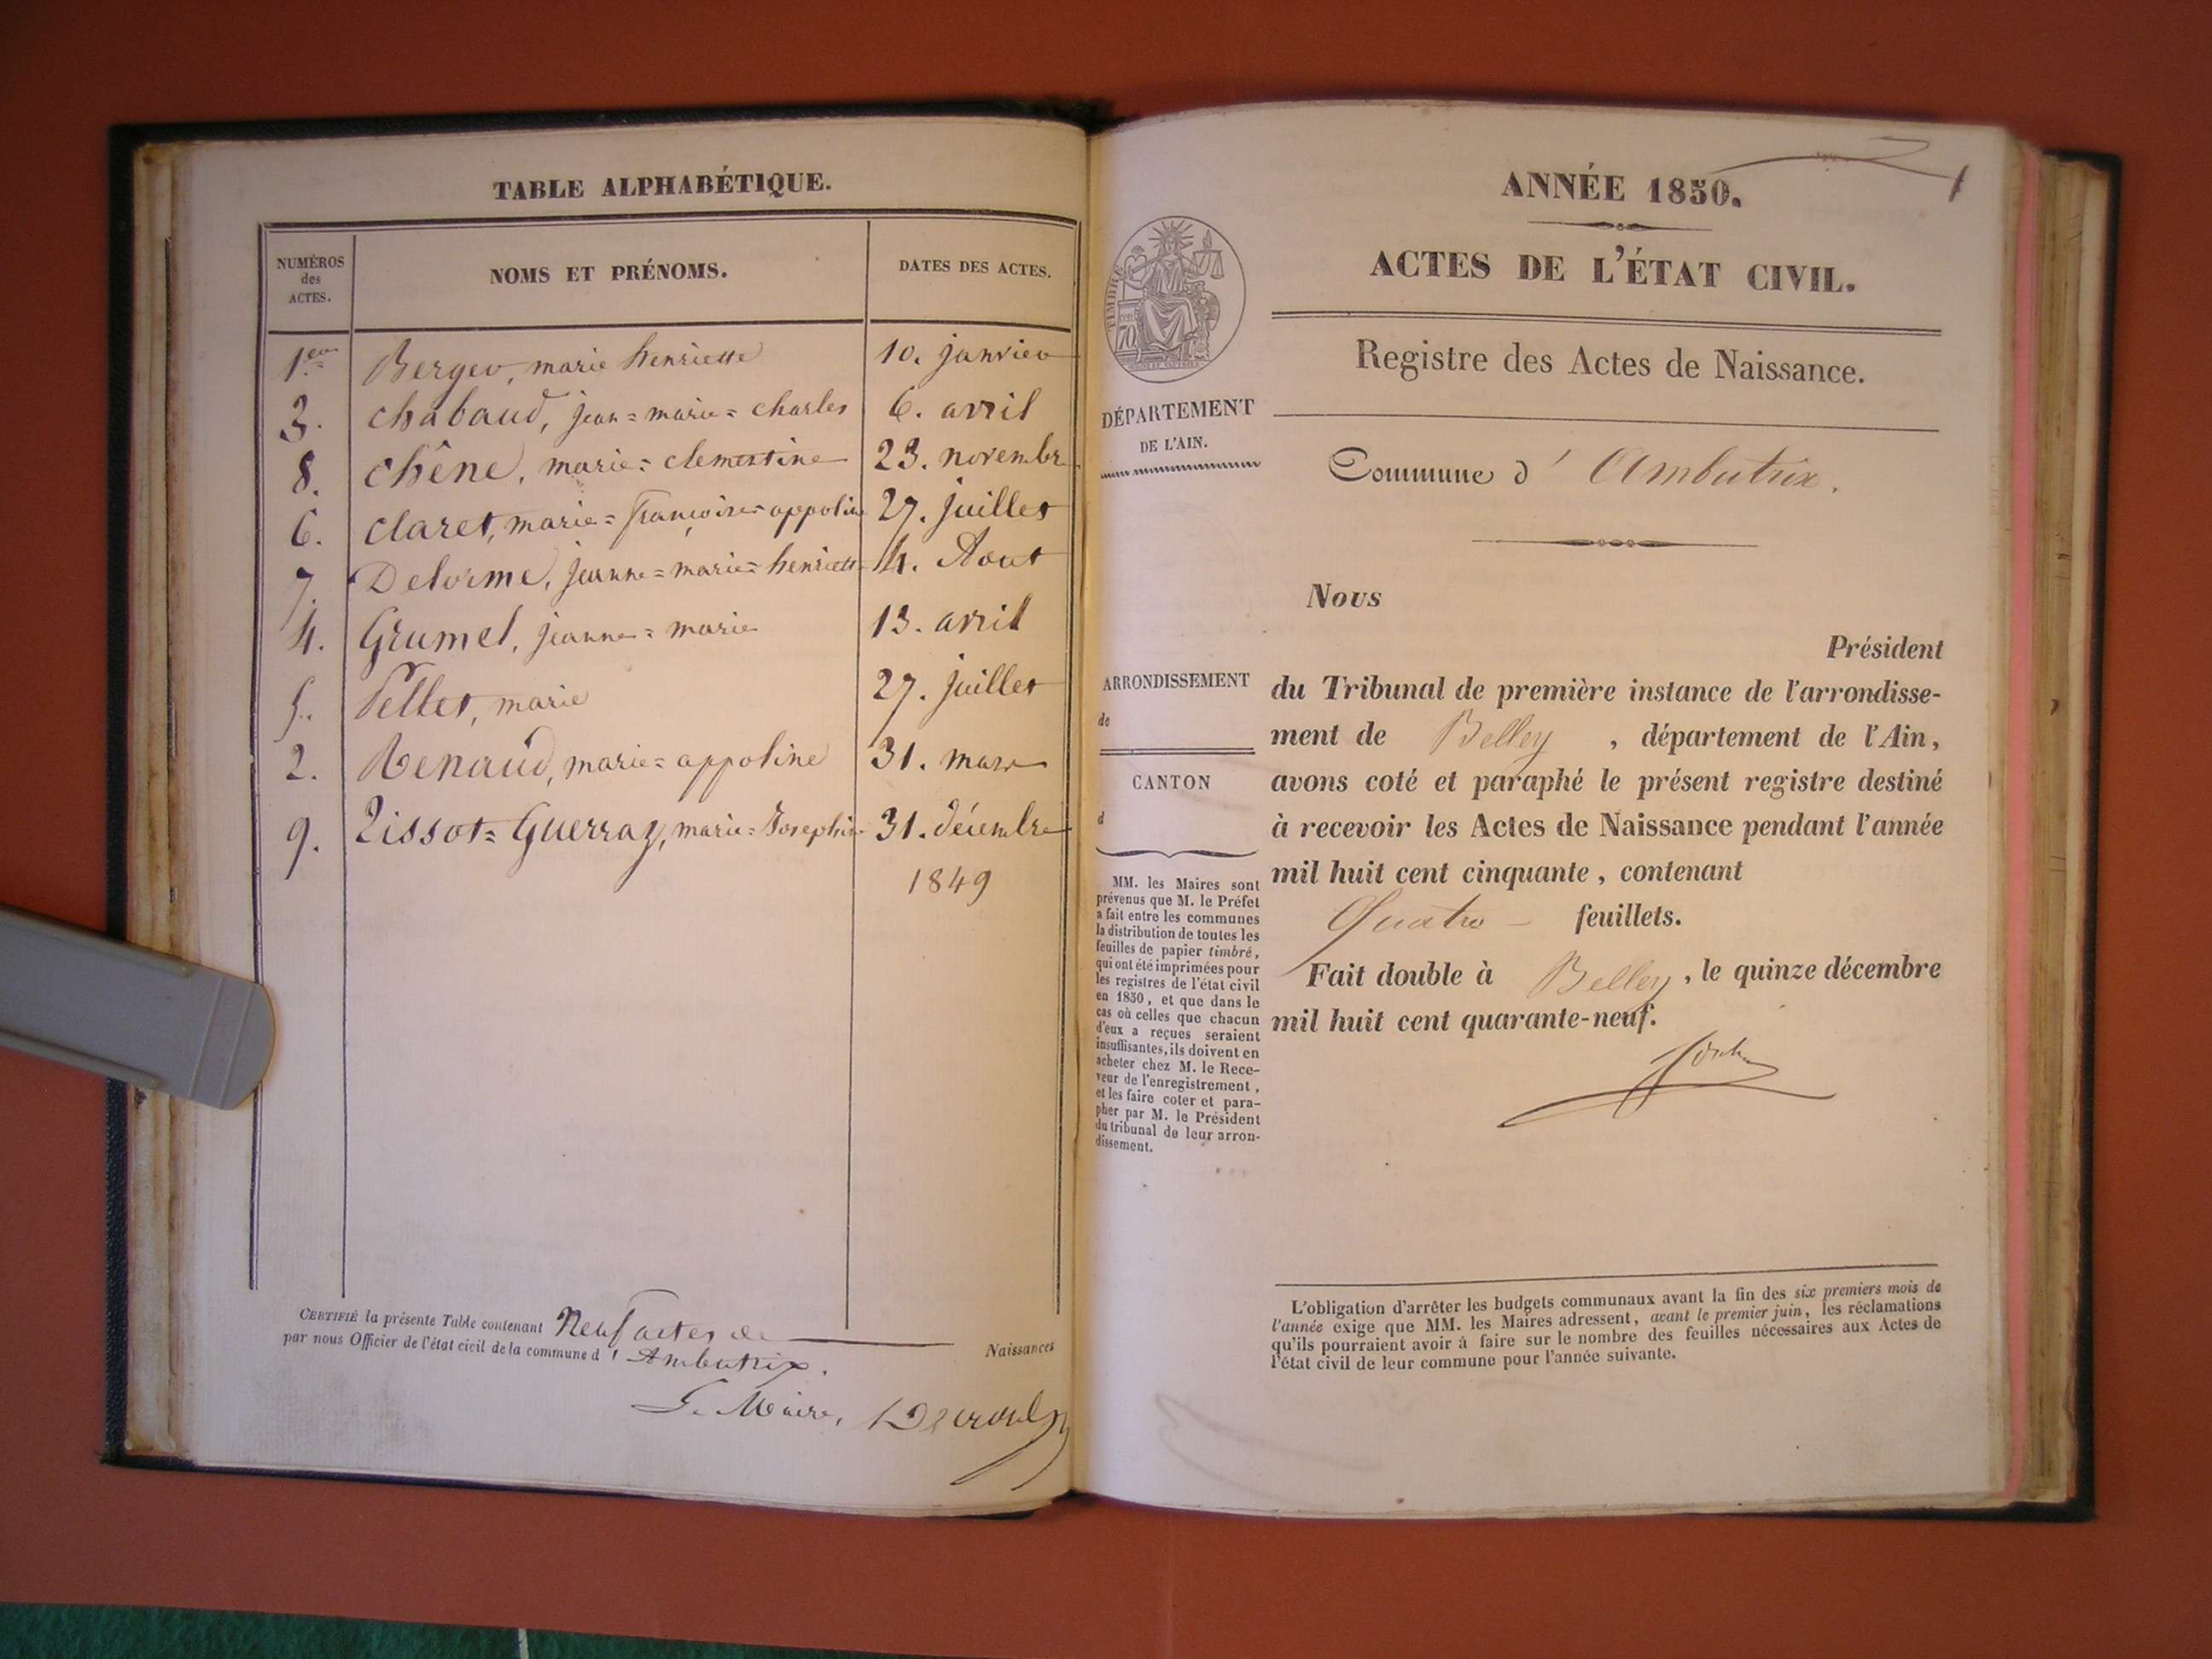 TABLE ALPHABÉTIQUE.
NUMÉROS
des
ACTES.
NOMS ET PRÉNOMS.
DATES DES ACTES.
1er Berger, marie henriette 10. janvier
3. chabaud, jean=marie=charles 6. avril
8. chêne, marie=clementine 23. novembre
6. claret, marie=françoise=appoline 27. juillet
7. Delorme, jeanne=marie=henriette 4. Aout
4. Grumel, jeanne=marie 13. avril
5. Pellet, marie 27. juillet
2. Renaud, marie=appoline 31. mars
9. Tissot=Guerraz, marie=Josephine 31. décembre
1849
CERTIFIÉ la présente Table contenant Neuf actes de Naissances
par nous Officier de l'état civil de la commune d'Ambutrix.
Le Maire,
ANNÉE 1850.
1
ACTES DE L'ÉTAT CIVIL.
Registre des Actes de Naissance.
TIMBRE
70
DÉPARTEMENT
DE L'AIN.
Commune d'Ambutrix.
Nous
Président
du Tribunal de première instance de l'arrondisse-
ment de Belley, département de l'Ain,
avons coté et paraphé le présent registre destiné
à recevoir les Actes de Naissance pendant l'année
mil huit cent cinquante, contenant
Quatre feuillets.
Fait double à Belley, le quinze décembre
mil huit cent quarante-neuf.
ARRONDISSEMENT
de
CANTON
d
MM. les Maires sont
prévenus que M. le Préfet
a fait entre les communes
la distribution de toutes les
feuilles de papier timbré,
qui ont été imprimées pour
les registres de l'état civil
en 1850, et que dans le
cas où celles que chacun
d'eux a reçues seraient
insuffisantes, ils doivent en
acheter chez M. le Rece-
veur de l'enregistrement,
et les faire coter et para-
pher par M. le Président
du tribunal de leur arron-
dissement.
L'obligation d'arrêter les budgets communaux avant la fin des six premiers mois de
l'année exige que MM. les Maires adressent, avant le premier juin, les réclamations
qu'ils pourraient avoir à faire sur le nombre des feuilles nécessaires aux Actes de
l'état civil de leur commune pour l'année suivante.